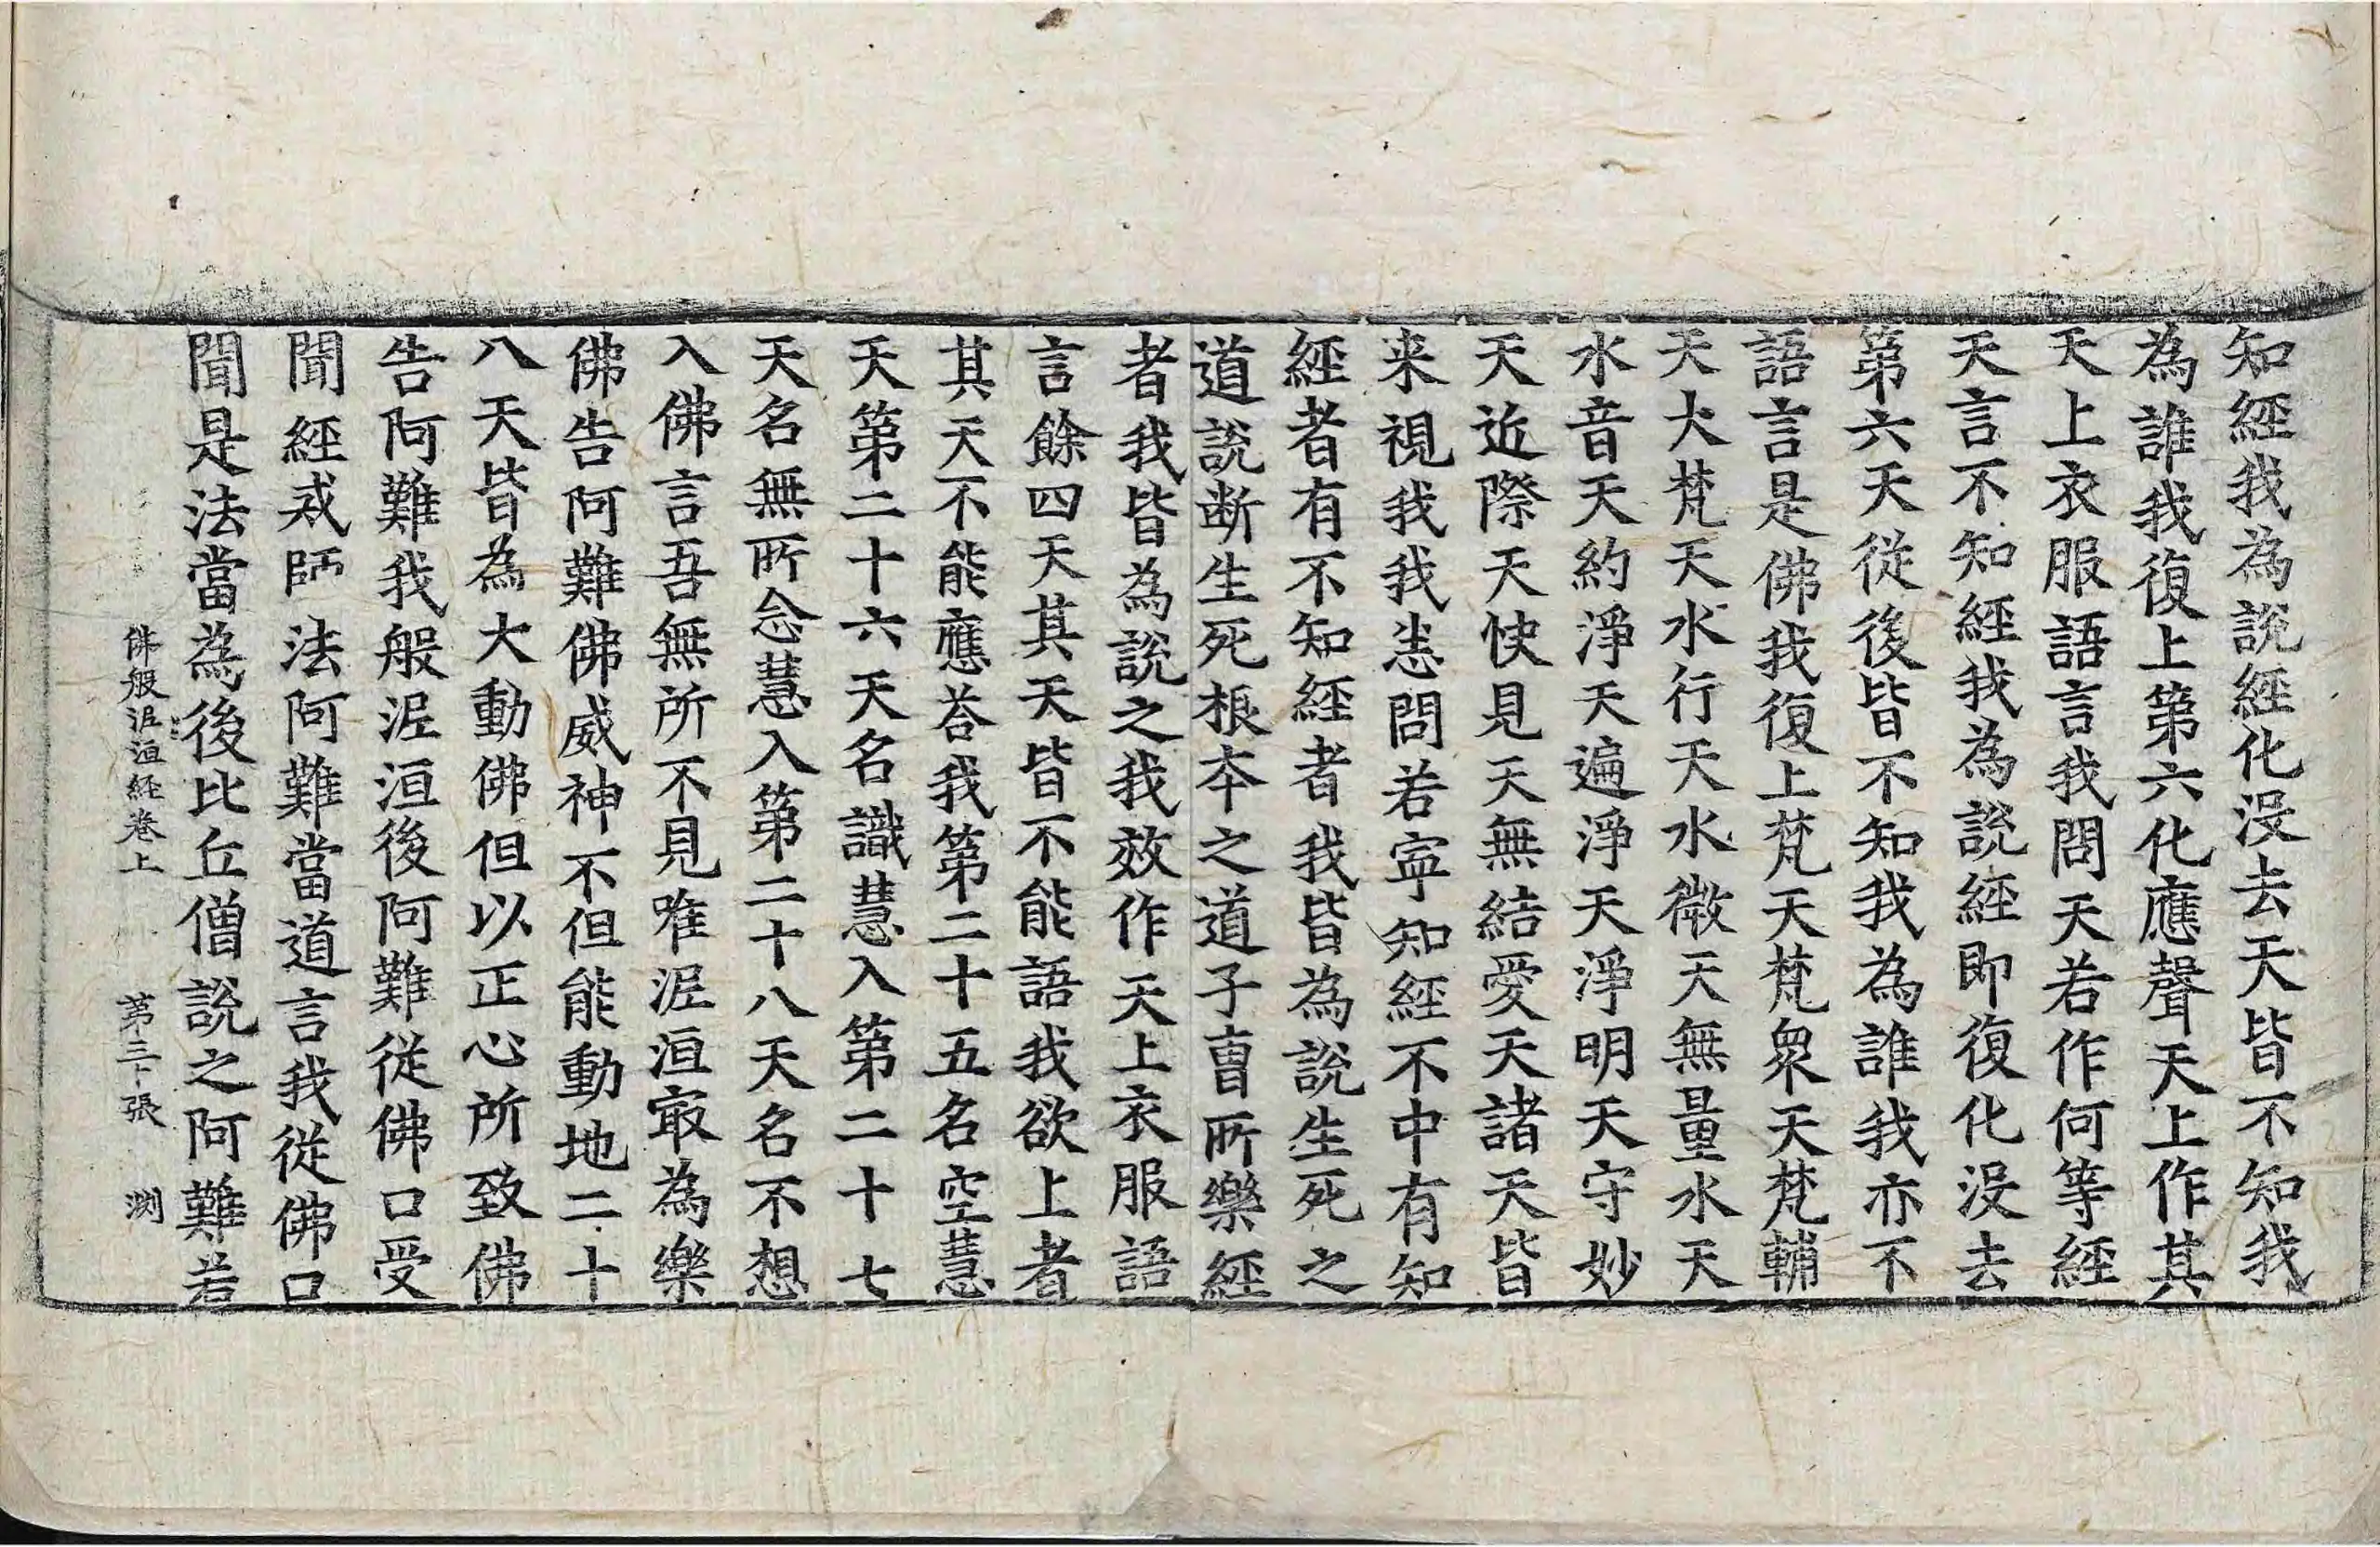 知經我爲說經化没去天皆不知我
爲誰我復上第六化應聲天上作其
天上衣服語言我問天若作何等經
天言不知經我爲說經即復化没去
第六天從後皆不知我爲誰我亦不
語言是佛我復上梵天梵衆天梵輔
天大梵天水行天水微天無量水天
水音天約淨天遍淨天淨明天守妙
天近際天快見天無結愛天諸天皆
来視我我悉問若寧知經不中有知
經者有不知經者我皆爲說生死之
道說断生死根夲之道子曺所樂經
者我皆爲說之我效作天上衣服語
言餘四天其天皆不能語我欲上者
其天不能應荅我第二十五名空慧
天第二十六天名識慧入第二十七
天名無所念慧入第二十八天名不想
入佛言吾無所不見唯泥洹㝡爲樂
佛告阿難佛威神不但能動地二十
八天皆爲大動佛但以正心所致佛
告阿難我般泥洹後阿難從佛口受
聞經戒師法阿難當道言我從佛口
聞是法當爲後比丘僧說之阿難若
佛般泥洹經卷上 第三十張 渕